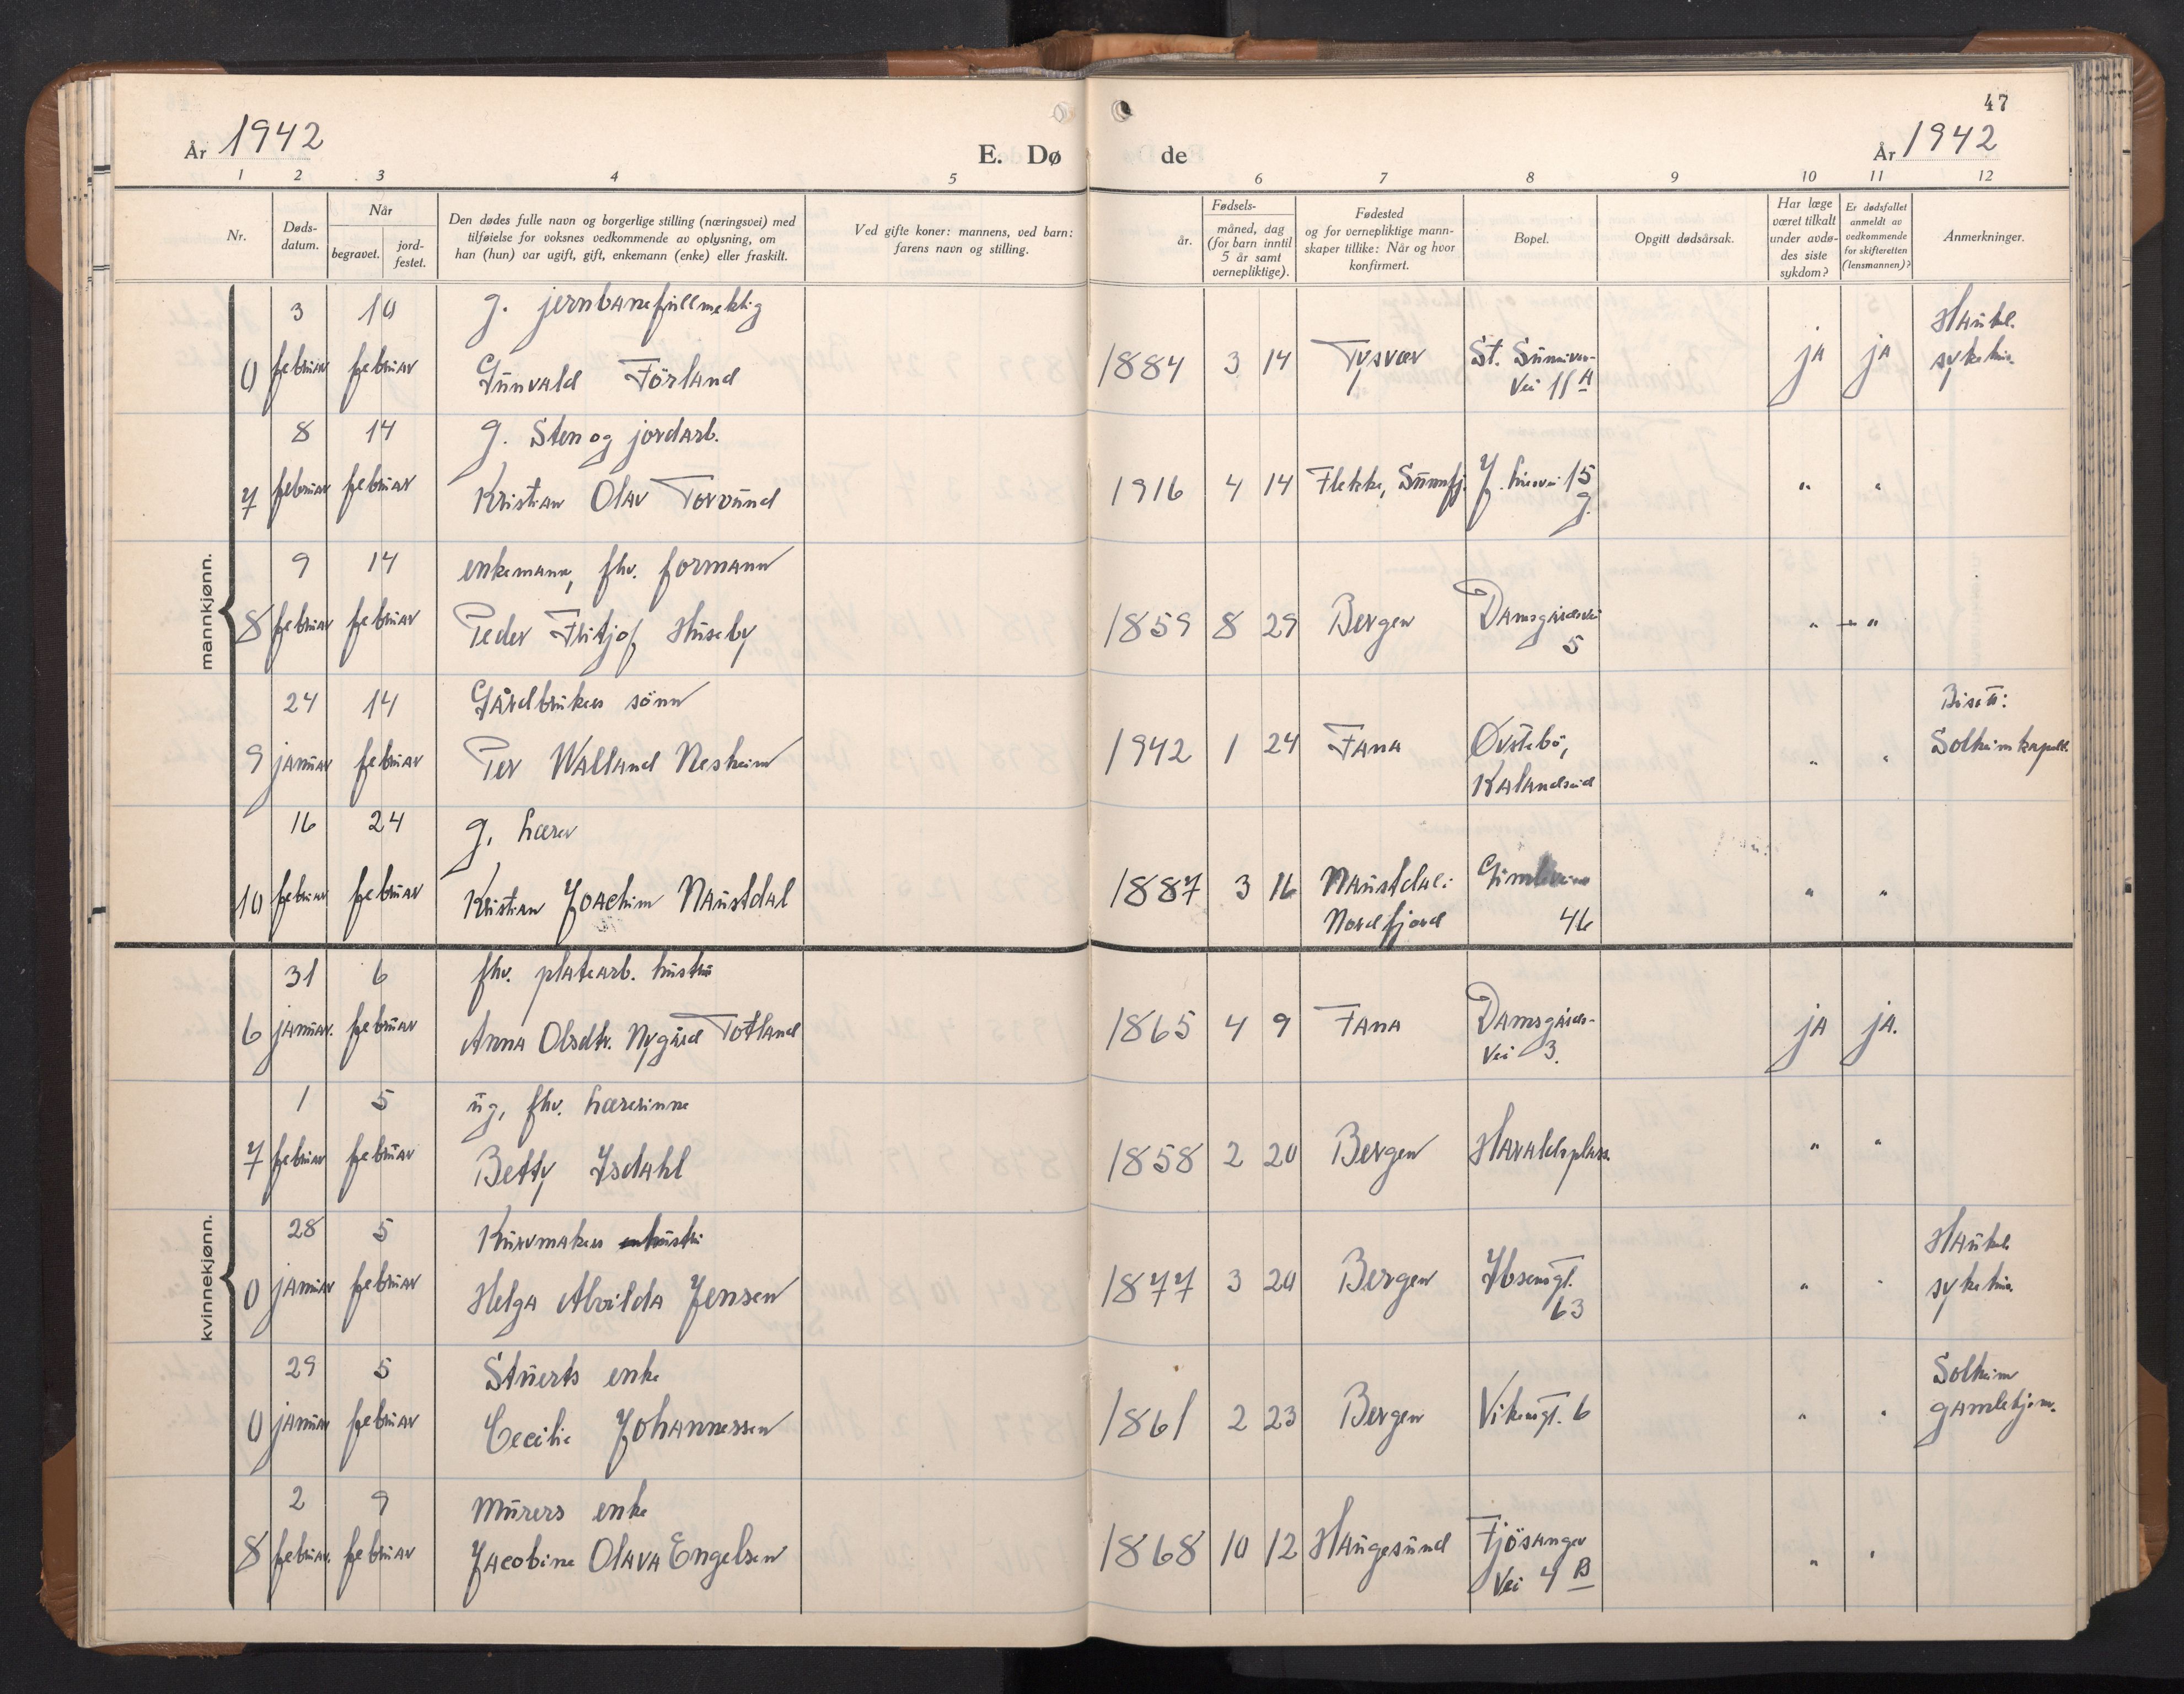 47
År 1942
E. Dø
de
År 1942
1 2 3 4 5 6 7 8 9 10 11 12
Nr.
Døds-
datum.
Når
begravet.
jord-
festet.
Den dødes fulle navn og borgerlige stilling (næringsvei) med
tilføielse for voksnes vedkommende av oplysning, om
han (hun) var ugift, gift, enkemann (enke) eller fraskilt.
Ved gifte koner: mannens, ved barn:
farens navn og stilling.
Fødsels-
år.
måned, dag
(for barn inntil
5 år samt
vernepliktige).
Fødested
og for vernepliktige mann-
skaper tillike: Når og hvor
konfirmert.
Bopel.
Opgitt dødsårsak.
Har læge
været tilkalt
under avdø-
des siste
sykdom?
Er dødsfallet
anmeldt av
vedkommende
for skifteretten
(lensmannen)?
Anmerkninger.
mannkjønn.
3 10 g. jernbanefullmektig Haukl.
0 februar februar Gunvald Förland 1884 3 14 Tysvær St. Sunniva- ja ja sykehus.
Vei 11 A
8 14 g. Sten og jordarb.
7 februar februar Kristian Olav Torvund 1916 4 14 Flekke, Sunnfj. 15 " "
9 14 enkemann, fhv. formann
8 februar februar Peder Fritjof Huseby 1859 8 29 Bergen Damsgårdsvei " "
5
24 14 Gårdbrukers sönn Bisatt:
9 januar februar Per Walland Nesheim 1942 1 24 Fana Øvstebö, " " Solheim kapell.
Kalandseid
16 24 g. lærer
10 februar februar Kristian Joachim Naustdal 1887 3 16 Naustdal: Gimleveien " "
Nordfjord 46
kvinnekjønn.
31 6 fhv. platearb. hustru
6 januar. februar Anna Olsdtr. Nygård Totland 1865 4 9 Fana Damsgårds- ja ja.
Vei 3.
1 5 ug, fhv. lærerinne
7 februar februar Betty Isdahl 1858 2 20 Bergen Haraldsplass. " "
28 5 Kurvmakers hustru Haukl.
0 januar februar Helga Alvilda Jensen 1877 3 20 Bergen Ibsensgt. " " sykehus.
63
29 5 Stuerts enke Solheim
0 januar februar Cecilie Johannessen 1861 2 23 Bergen Vikensgt. 6 " " gamlehjem.
2 9 Murers enke
8 februar. februar Jacobine Olava Engelsen 1868 10 12 Haugesund Fjösanger " "
Vei 4 B